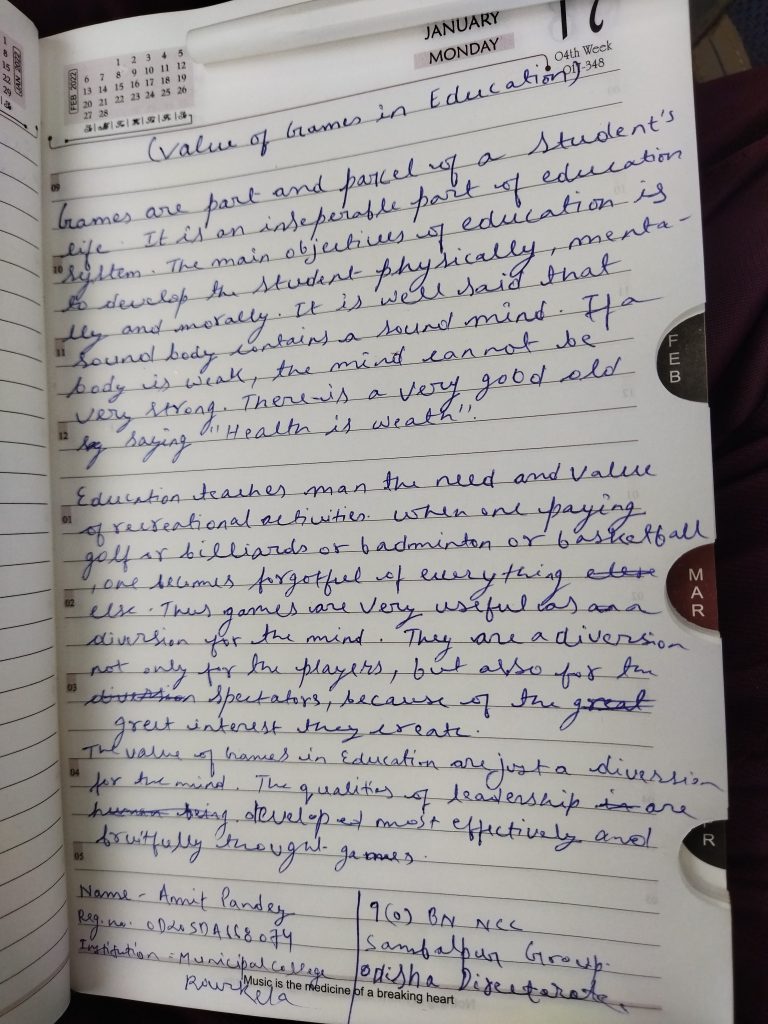 JANUARY
17
MONDAY
04th Week
017-348
FEB 2022
1 2 3 4 5
6 7 8 9 10 11 12
13 14 15 16 17 18 19
20 21 22 23 24 25 26
27 28
(Value of Games in Education)
09
Games are part and parcel of a Student's
life. It is an inseperable part of education
10
System. The main objectives of education is
to develop the student physically, menta-
lly and morally. It is well said that
11
Sound body contains a sound mind. If a
body is weak, the mind cannot be
very strong. There is a very good old
12
sy saying "Health is weath".
Education teaches man the need and value
01
of recreational activities. When one paying
golf or billiards or badminton or basketball
, one becomes forgotful of everything else
02
else. Thus games are very useful as an a
diversion for the mind. They are a diversion
not only for the players, but also for the
03
diversion Spectators, because of the great
greit interest they create.
The value of Games in Education are just a diversion
04
for the mind. The qualities of leadership is are
human being developed most effectively and
fruitfully thought games.
05
Name - Amit Pandey
Reg. no. OD20SDA168074
Institution - Municipal College
Rourkela
9(O) BN NCC
Sambalpur Group.
Odisha Directorate.
Music is the medicine of a breaking heart
FEB
MAR
R